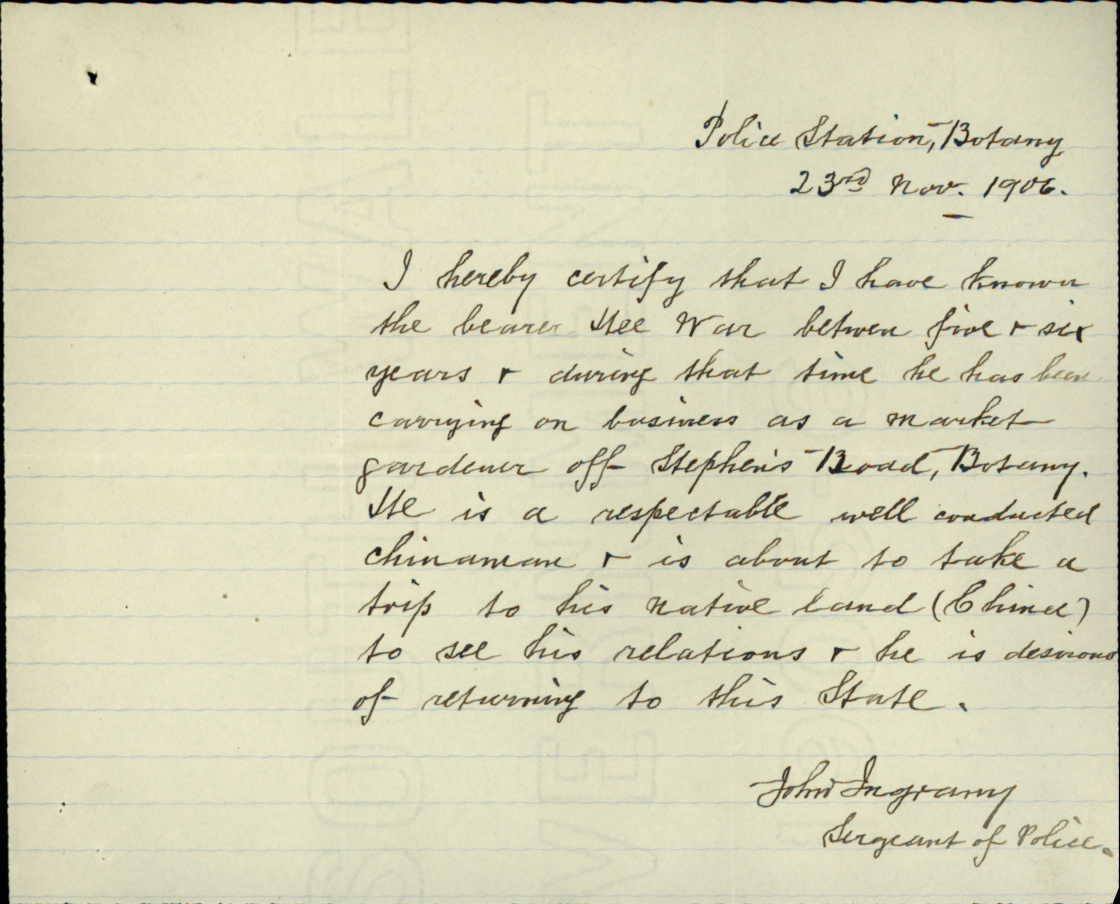 Police Station, Botany
23rd Nov. 1906.
I hereby certify that I have known
the bearer Hee War between five & six
years & during that time he has been
carrying on business as a market
gardener off Stephen's Road, Botany.
He is a respectable well conducted
chinaman & is about to take a
trip to his native land (China)
to see his relations & he is desirous
of returning to this State.
John Ingram
Sergeant of Police.